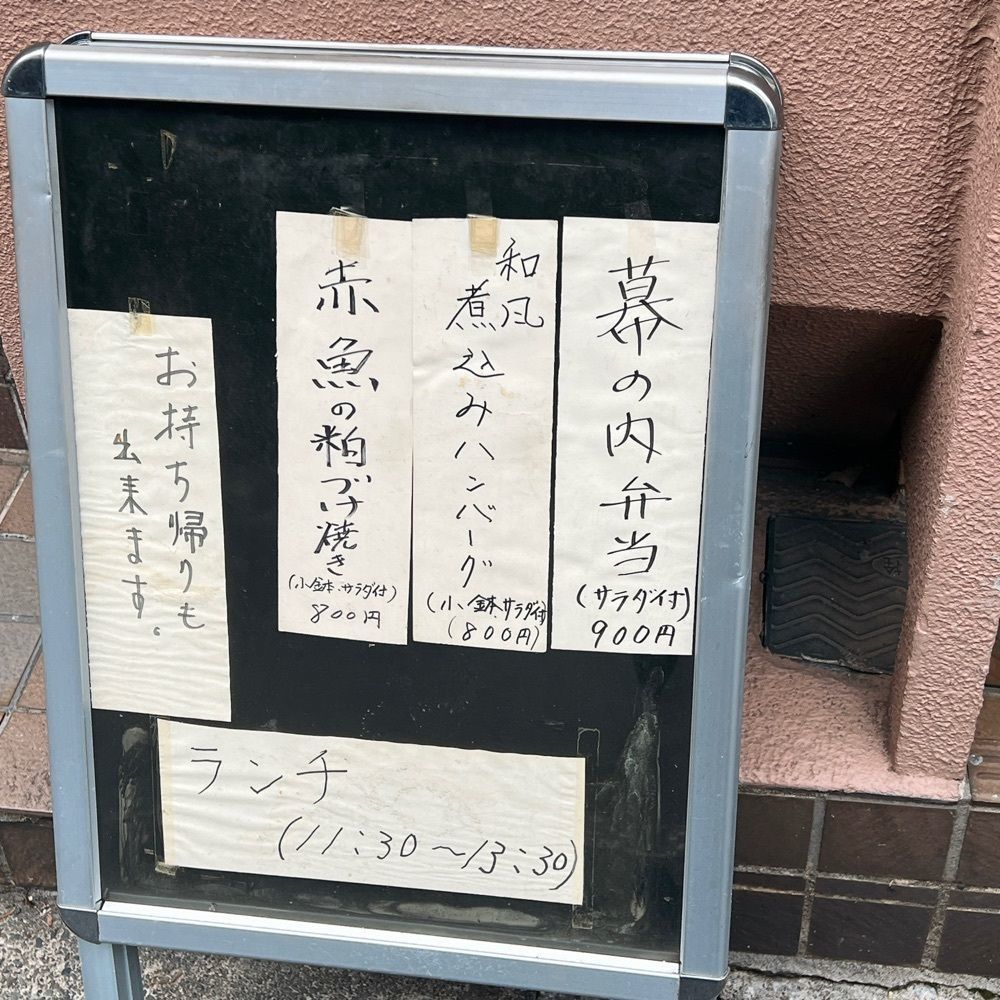 幕の内弁当
(サラダ付)
900円
和風
煮込みハンバーグ
(小鉢、サラダ付)
(800円)
赤魚の粕づけ焼き
(小鉢、サラダ付)
800円
お持ち帰りも
出来ます。
ランチ
(11:30〜13:30)